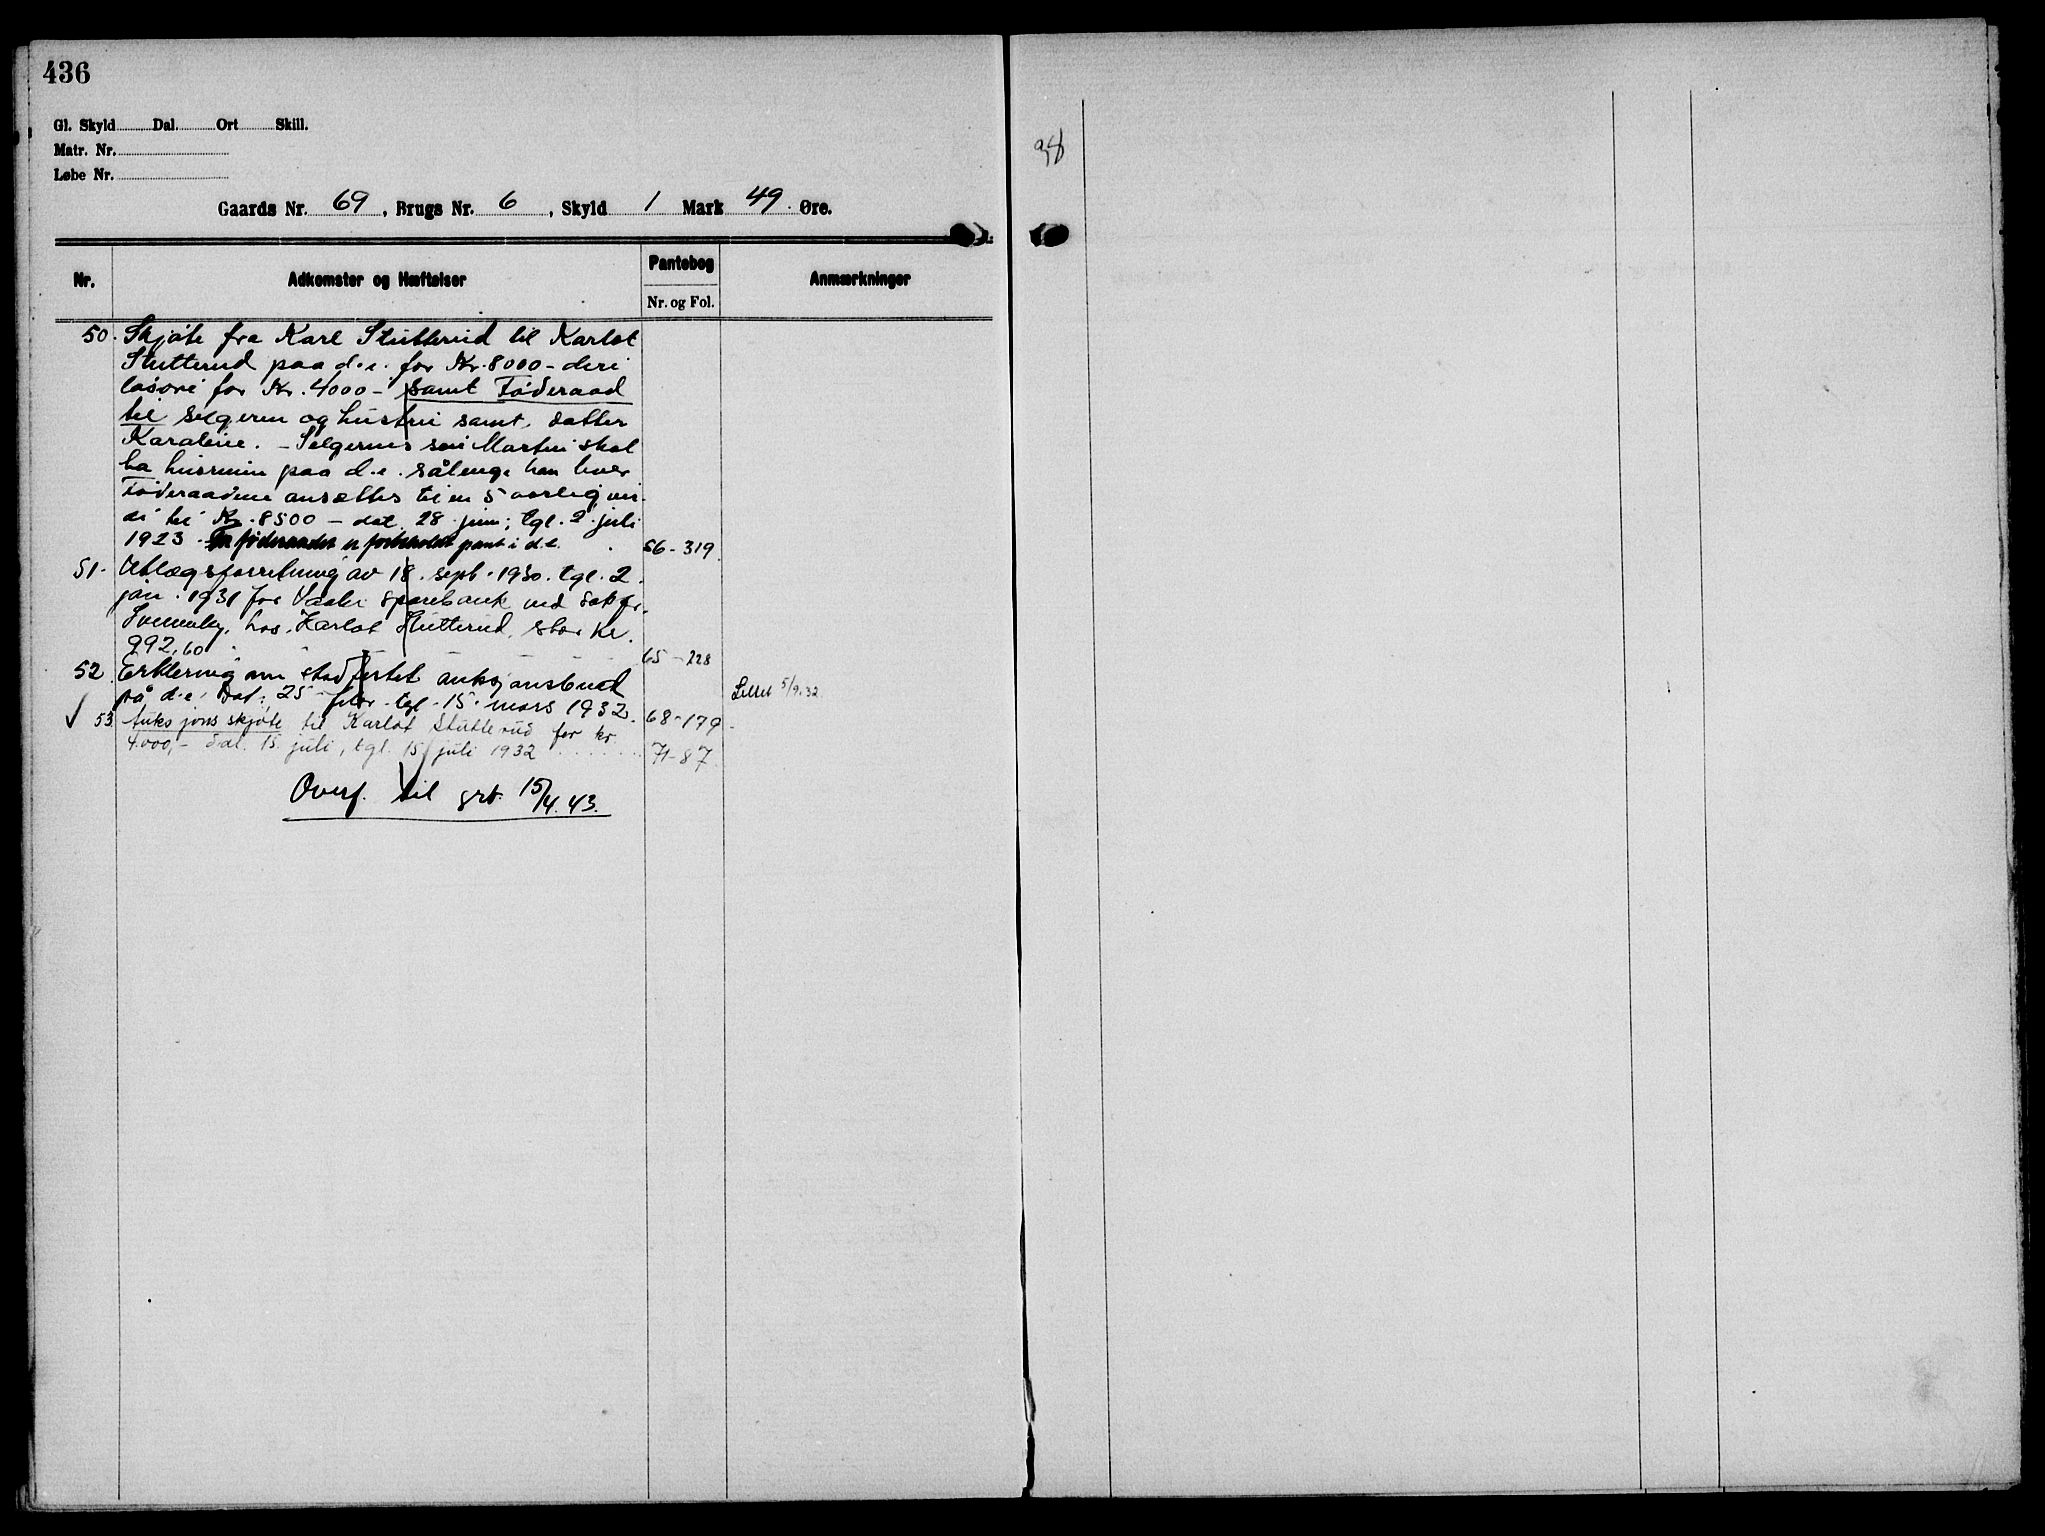 436
Gl. Skyld Dal. Ort Skill.
Matr. Nr.
Løbe Nr.
Gaards Nr. 69, Brugs Nr. 6, Skyld 1 Mark 49 Øre.
Nr. Adkomster og Hæftelser Pantebog Anmærkninger
Nr. og Fol.
50. Skjøte fra Karl Stutterud til Karlot
Stutterud paa d.e. for Kr. 8000 - deri
løsøre for Kr. 4000 - samt Føderaad
til selgeren og hustru samt datter
Karoline. - Selgernes søn Martin skal
ha husrum paa d.e. sålenge han lever
Føderaadene ansættes til en 5 aarlig ver-
di til Kr. 8500 - dat. 28 juni; tgl. 2 juli
1923. For føderaadet er forbeholdt pant i d.e. 56-319
51. Utlægsforretning av 18. sept. 1930. tgl. 2
jan. 1931 for Vaaler sparebank ved sakfr.
Svenneby, hos Karlot Stutterud, stor kr.
992,60 65-228
52. Erklering om stadfestet auksjonsbud
på d.e. Dat. 25 febr. tgl. 15. mars 1932. 68-179 Slettet 5/9.32
✓ 53 Auksjonsskjøte til Karlot Stutterud for kr
4.000,- dat. 15. juli, tgl. 15 juli 1932 71-87
Overf. til grb. 15/4.43.
38